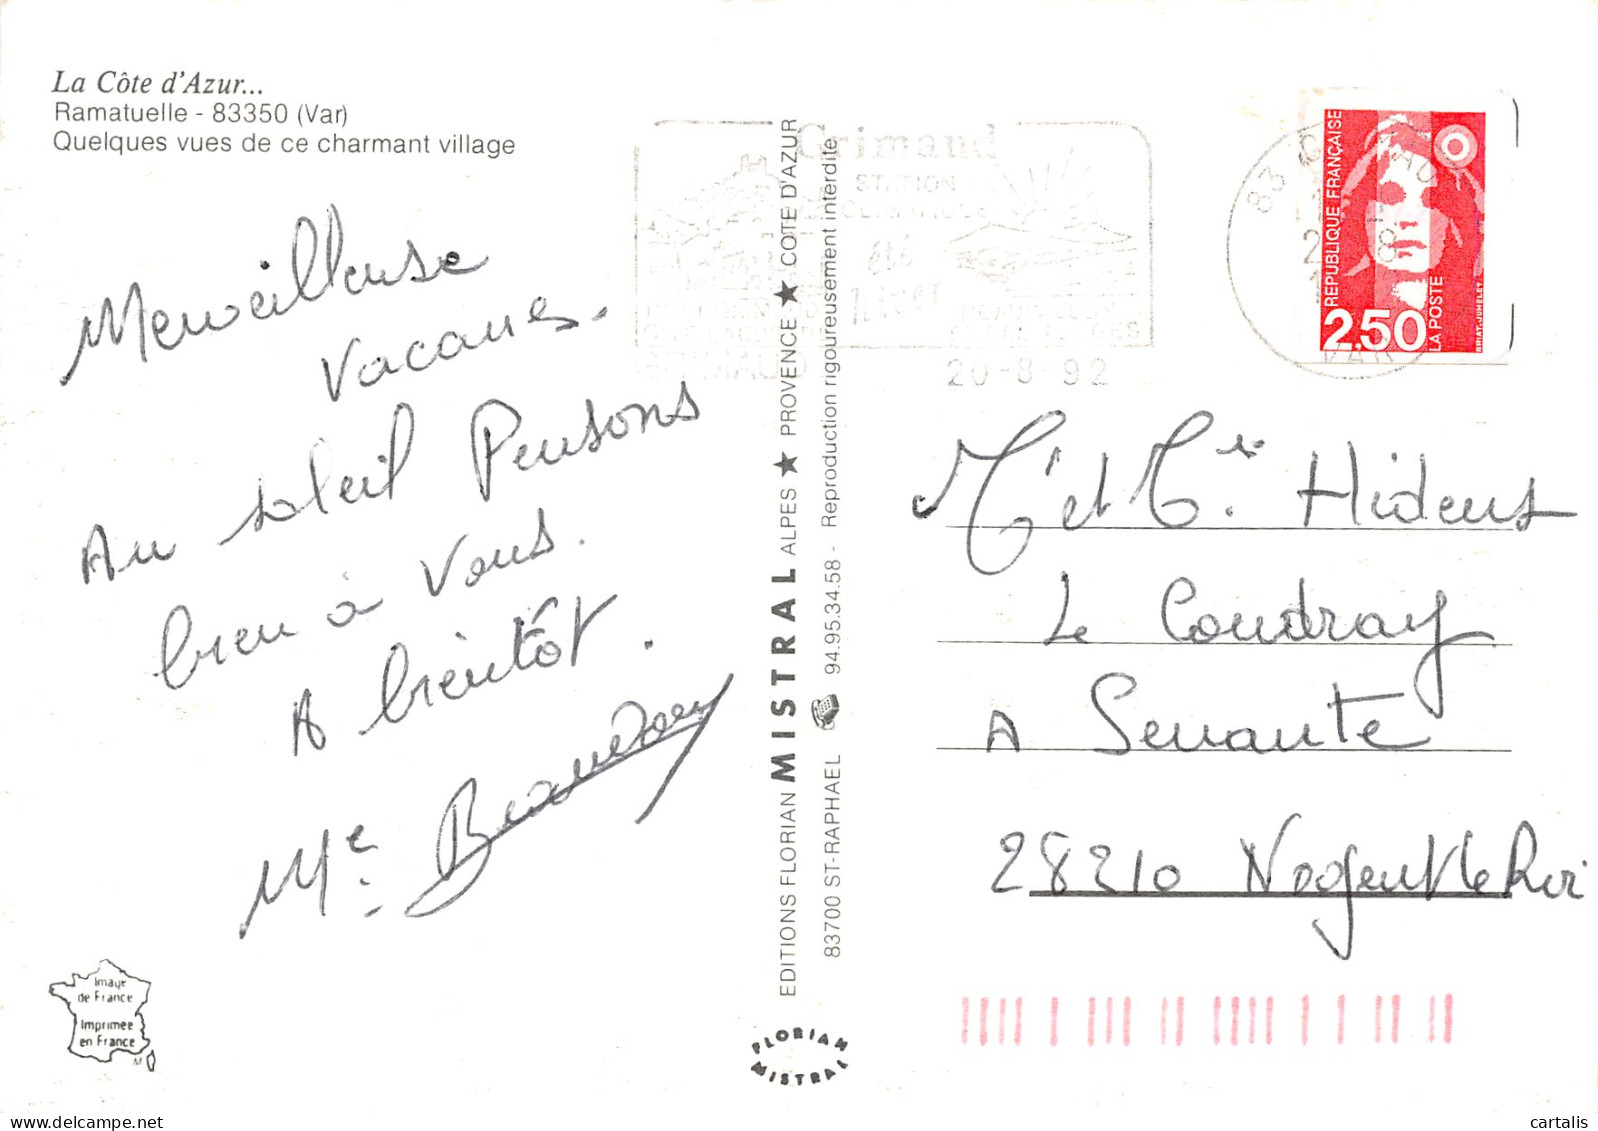 La Côte d'Azur...
Ramatuelle - 83350 (Var)
Quelques vues de ce charmant village
Merveilleuse
vacances.
Au soleil Pensons
bien à vous.
A bientôt.
Me
EDITIONS FLORIAN MISTRAL ALPES ★ PROVENCE ★ COTE D'AZUR
83700 ST-RAPHAEL 94.95.34.58 - Reproduction rigoureusement interdite
Grimaud
STATION
été
hiver
GRIMAUD 20-8-92
83 GRIMAUD
VAR
REPUBLIQUE FRANÇAISE
2,50
LA POSTE
BRIAT-JUMELET
Mr et Me Hideus
Le Coudray
A Senante
28210 Nogent le Roi
Image
de France
Imprimée
en France
FLORIAN
MISTRAL
cartalis